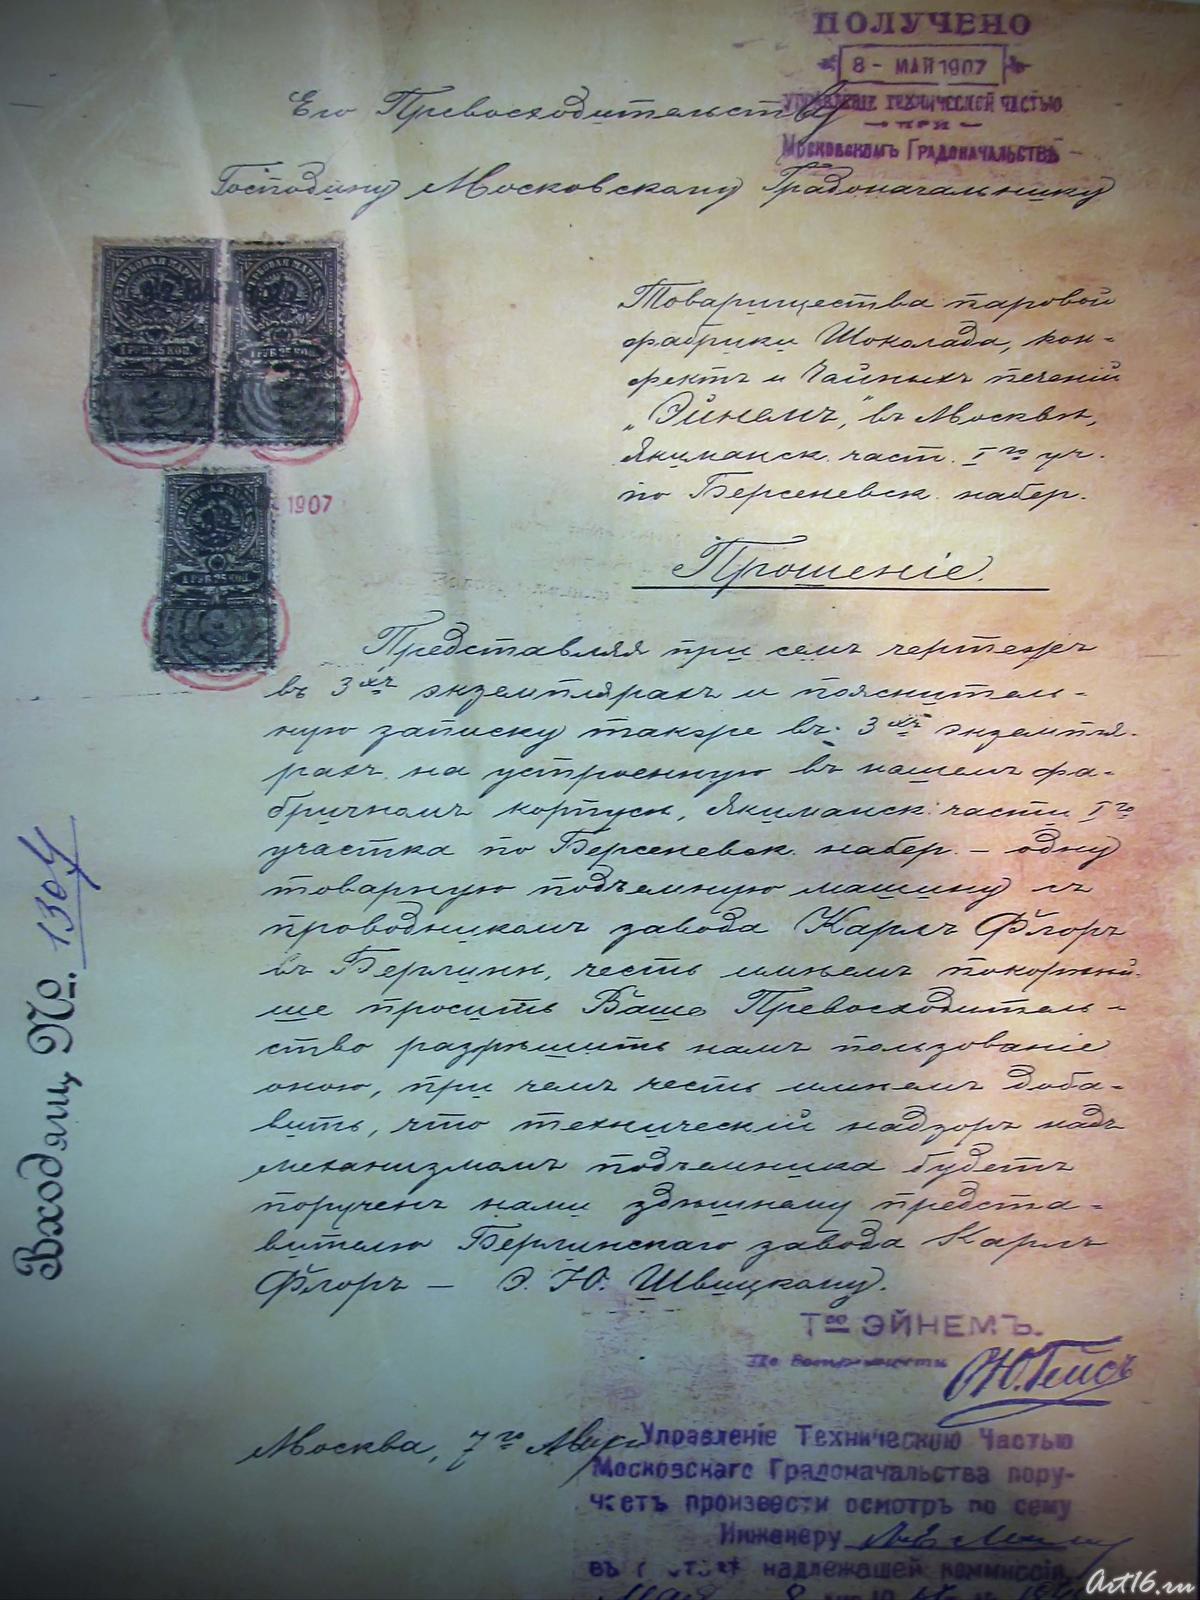 ПОЛУЧЕНО
8 - МАЙ 1907
УПРАВЛЕНІЕ ТЕХНИЧЕСКОЙ ЧАСТЬЮ
ПРИ
МОСКОВСКОМЪ ГРАДОНАЧАЛЬСТВѢ
Его Превосходительству
Господину Московскому Градоначальнику
ГЕРБОВАЯ МАРКА
ГЕРБОВАЯ МАРКА
1 РУБ. 25 КОП.
1 РУБ. 25 КОП.
1907
1 РУБ. 25 КОП.
Товарищества паровой
фабрики Шоколада, кон-
фектъ и Чайныхъ печеній
„Эйнемъ", въ Москвѣ,
Якиманск. част. I го уч.
по Берсеневск. набер.
Прошеніе.
Представляя при семъ чертежъ
въ 3хъ экземплярахъ и поясните­ль-
ную записку также въ 3хъ экземпля-
рахъ на устроенную въ нашемъ фа-
бричномъ корпусѣ, Якиманск. части I го
участка по Берсеневск. набер. – одну
товарную подъемную машину съ
проводникомъ завода Карлъ Флоръ
въ Берлинѣ, честь имѣемъ покорнѣй-
ше просить Ваше Превосходитель-
ство разрѣшить намъ пользованіе
оною, при чемъ честь имѣемъ доба-
вить, что техническій надзоръ надъ
механизмомъ подъемника будетъ
порученъ нами здѣшнему предста-
вителю Берлинскаго завода Карлъ
Флоръ – Э. Ю. Швицкому.
Т во ЭЙНЕМЪ.
По довѣренности Ю. Гейсъ
Москва, 7 го
Управленіе Техническою Частью
Московскаго Градоначальства пору-
чаетъ произвести осмотръ по сему
Инженеру
въ надлежащей коммиссіи
Входящ. №. 1304
Art16.ru